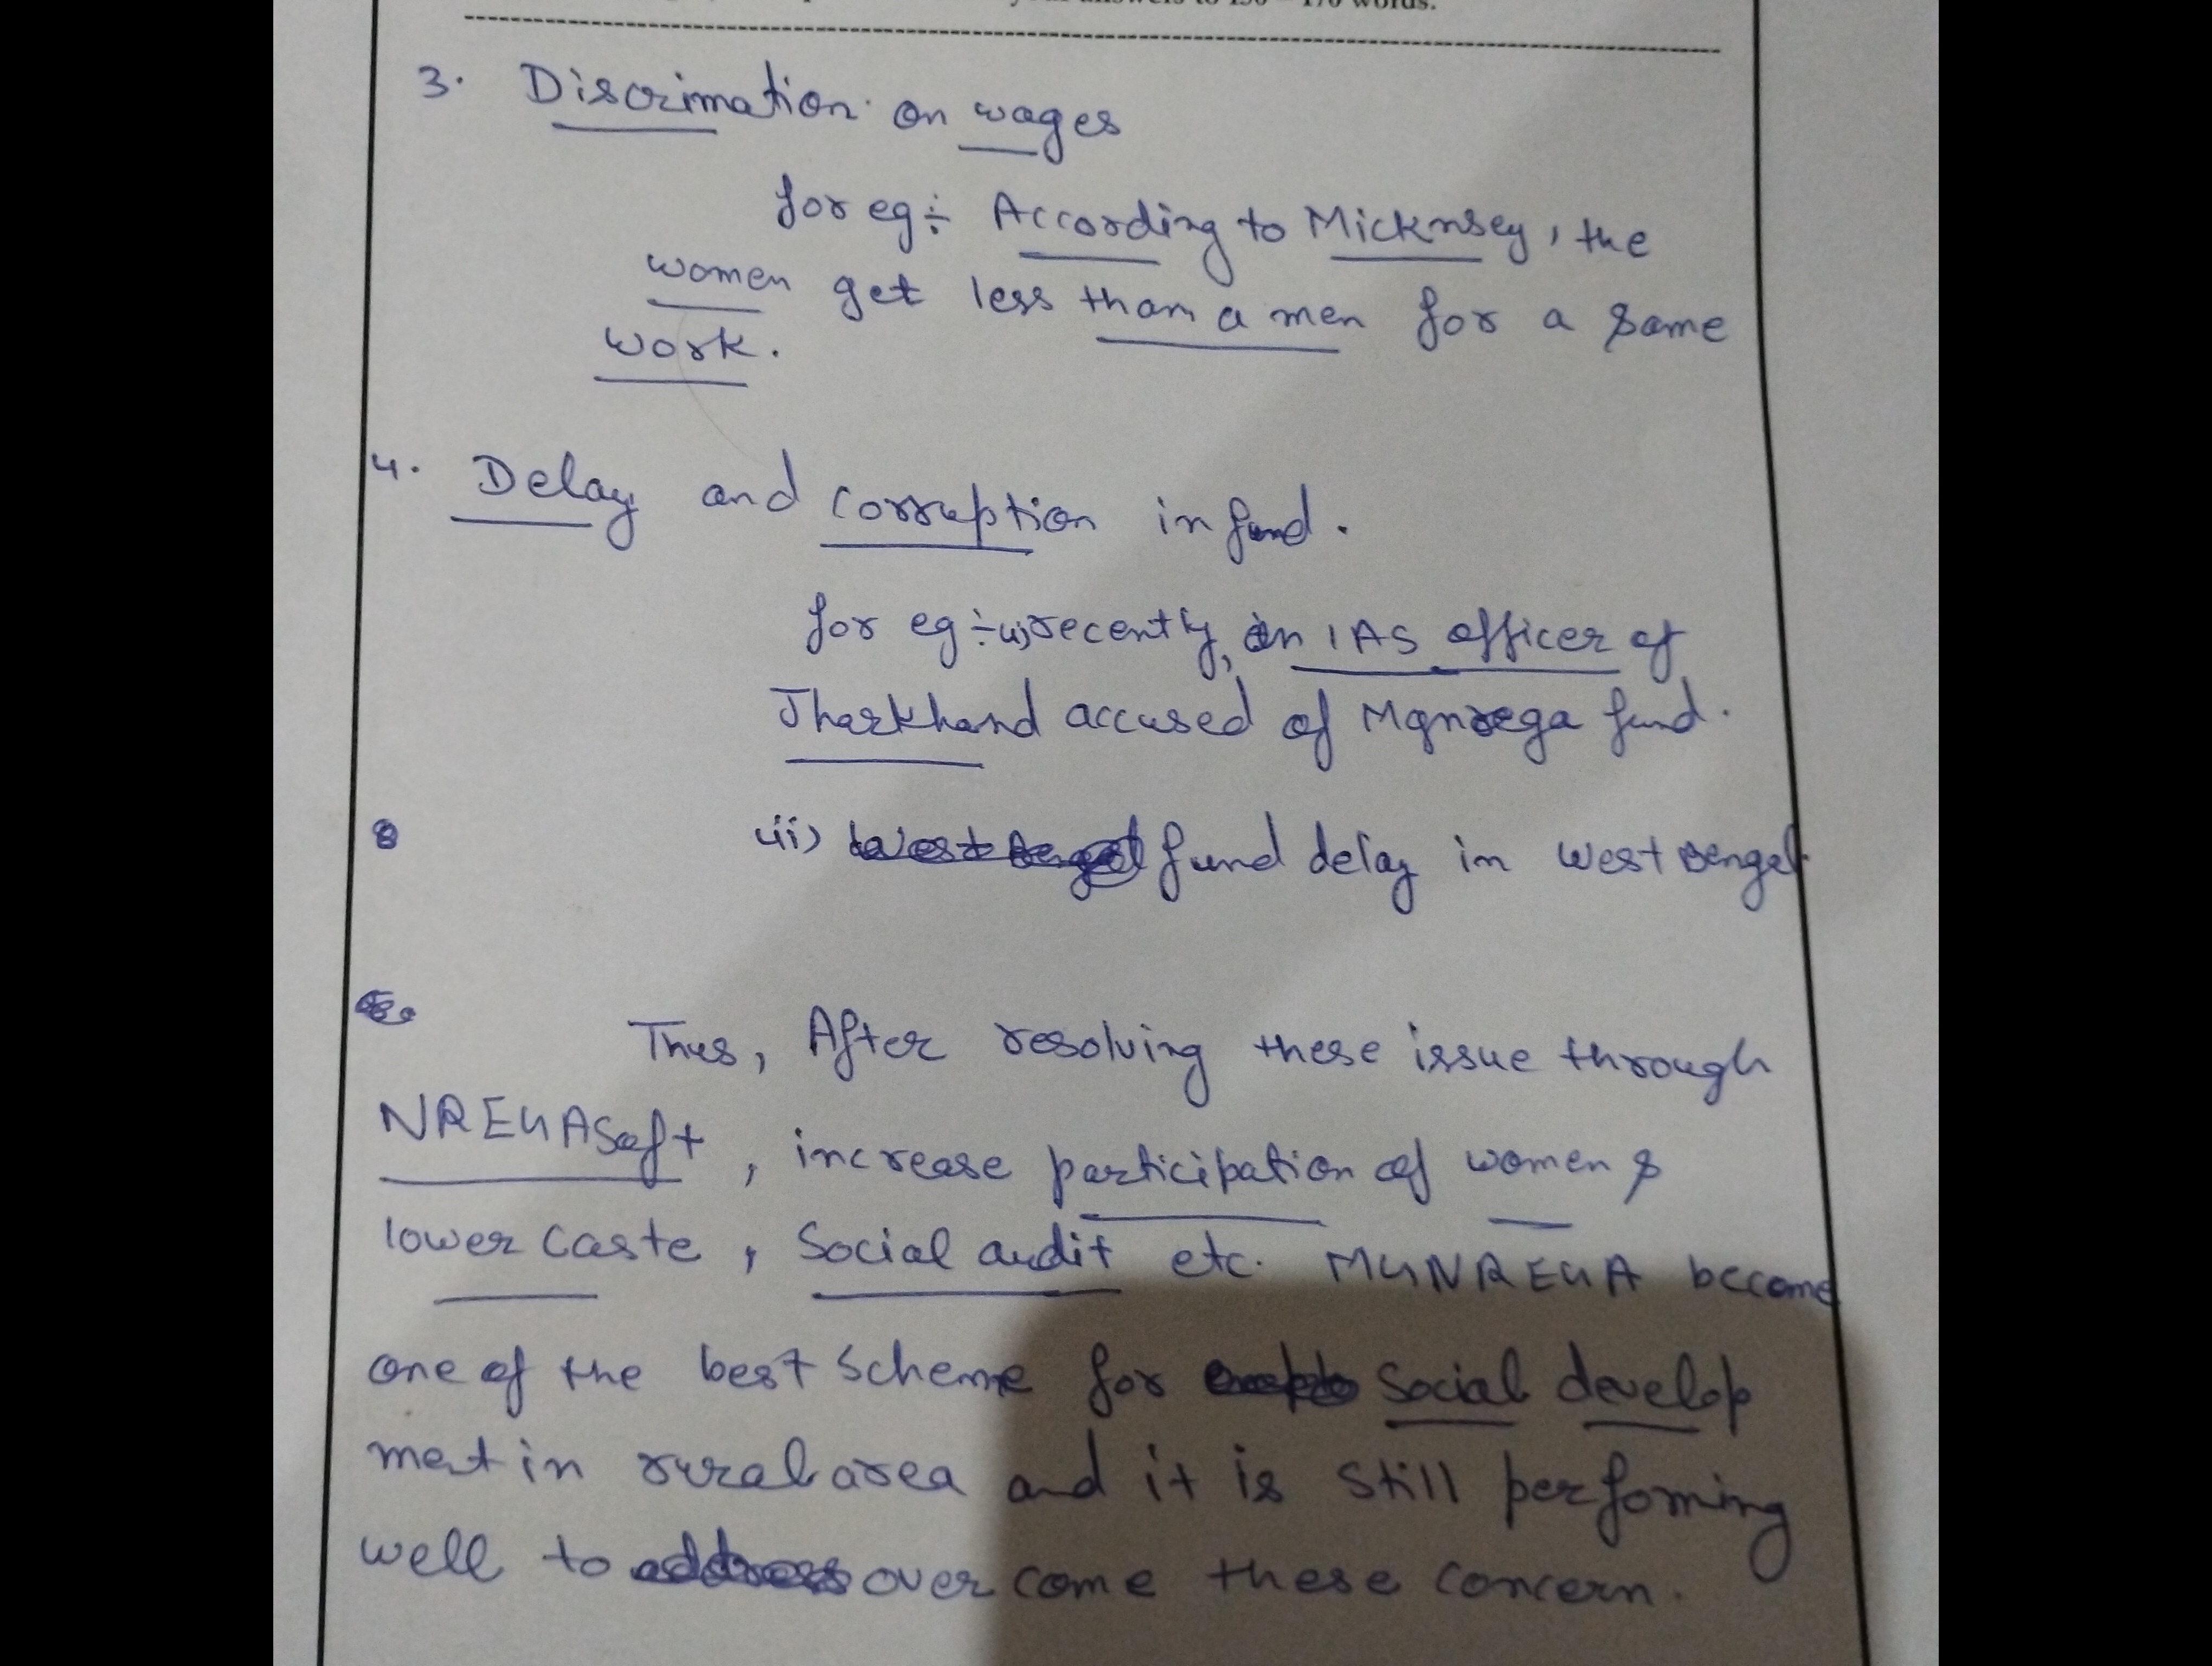 your answers to 150 – 170 words.
3. Discrimation on wages
for eg:- According to Micknsey, the
women get less than a men for a same
work.
4. Delay and corruption in fund.
for eg:- i) recently, an IAS officer of
Jharkhand accused of Mgnrega fund.
8
ii) fund delay in West Bengal
Thus, After resolving these issue through
NREGASoft, increase participation of women &
lower caste, Social audit etc. MGNREGA become
one of the best scheme for social develop
ment in rural area and it is still perfoming
well to over come these concern.